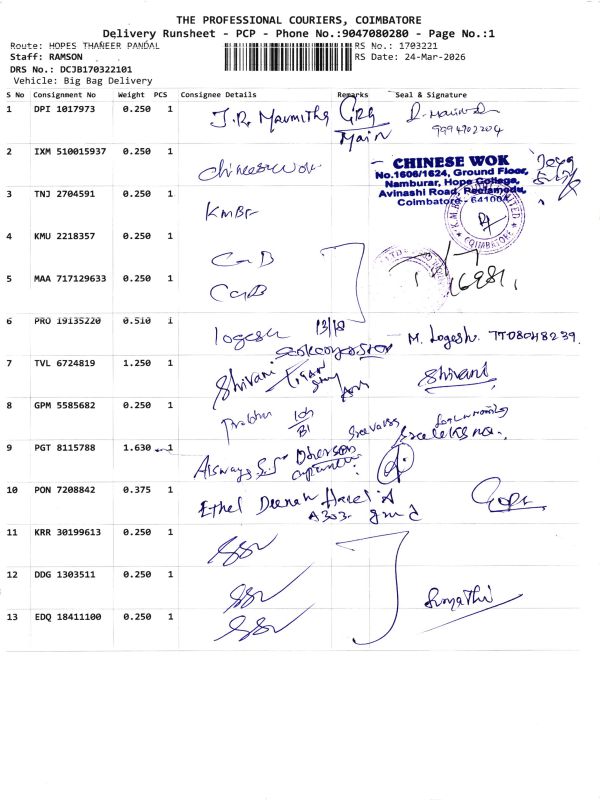 THE PROFESSIONAL COURIERS, COIMBATORE
Delivery Runsheet - PCP - Phone No.:9047080280 - Page No.:1
Route: HOPES THANEER PANDAL RS No.: 1703221
Staff: RAMSON RS Date: 24-Mar-2026
DRS No.: DCJB170322101
Vehicle: Big Bag Delivery
S No Consignment No Weight PCS Consignee Details Remarks Seal & Signature
1 DPI 1017973 0.250 1 J.R. GRG
Main
2 IXM 510015937 0.250 1 chinese wok
CHINESE WOK
No.1606/1624, Ground Floor,
Namburar, Hope College,
Avinashi Road, Peelamedu,
Coimbatore - 641004
3 TNJ 2704591 0.250 1 KMBr
COIMBATORE
4 KMU 2218357 0.250 1 CaB
5 MAA 717129633 0.250 1 CaB
6 PRO 19135220 0.510 1 logesh 13/18 - M. Logesh. 7708048239
7 TVL 6724819 1.250 1 Shivani Shivani
8 GPM 5585682 0.250 1 Prabhu
9 PGT 8115788 1.630 1
10 PON 7208842 0.375 1 Ethel Deenah
A303.
11 KRR 30199613 0.250 1 SSV
12 DDG 1303511 0.250 1 SSV
Sumathi
13 EDQ 18411100 0.250 1 SSV